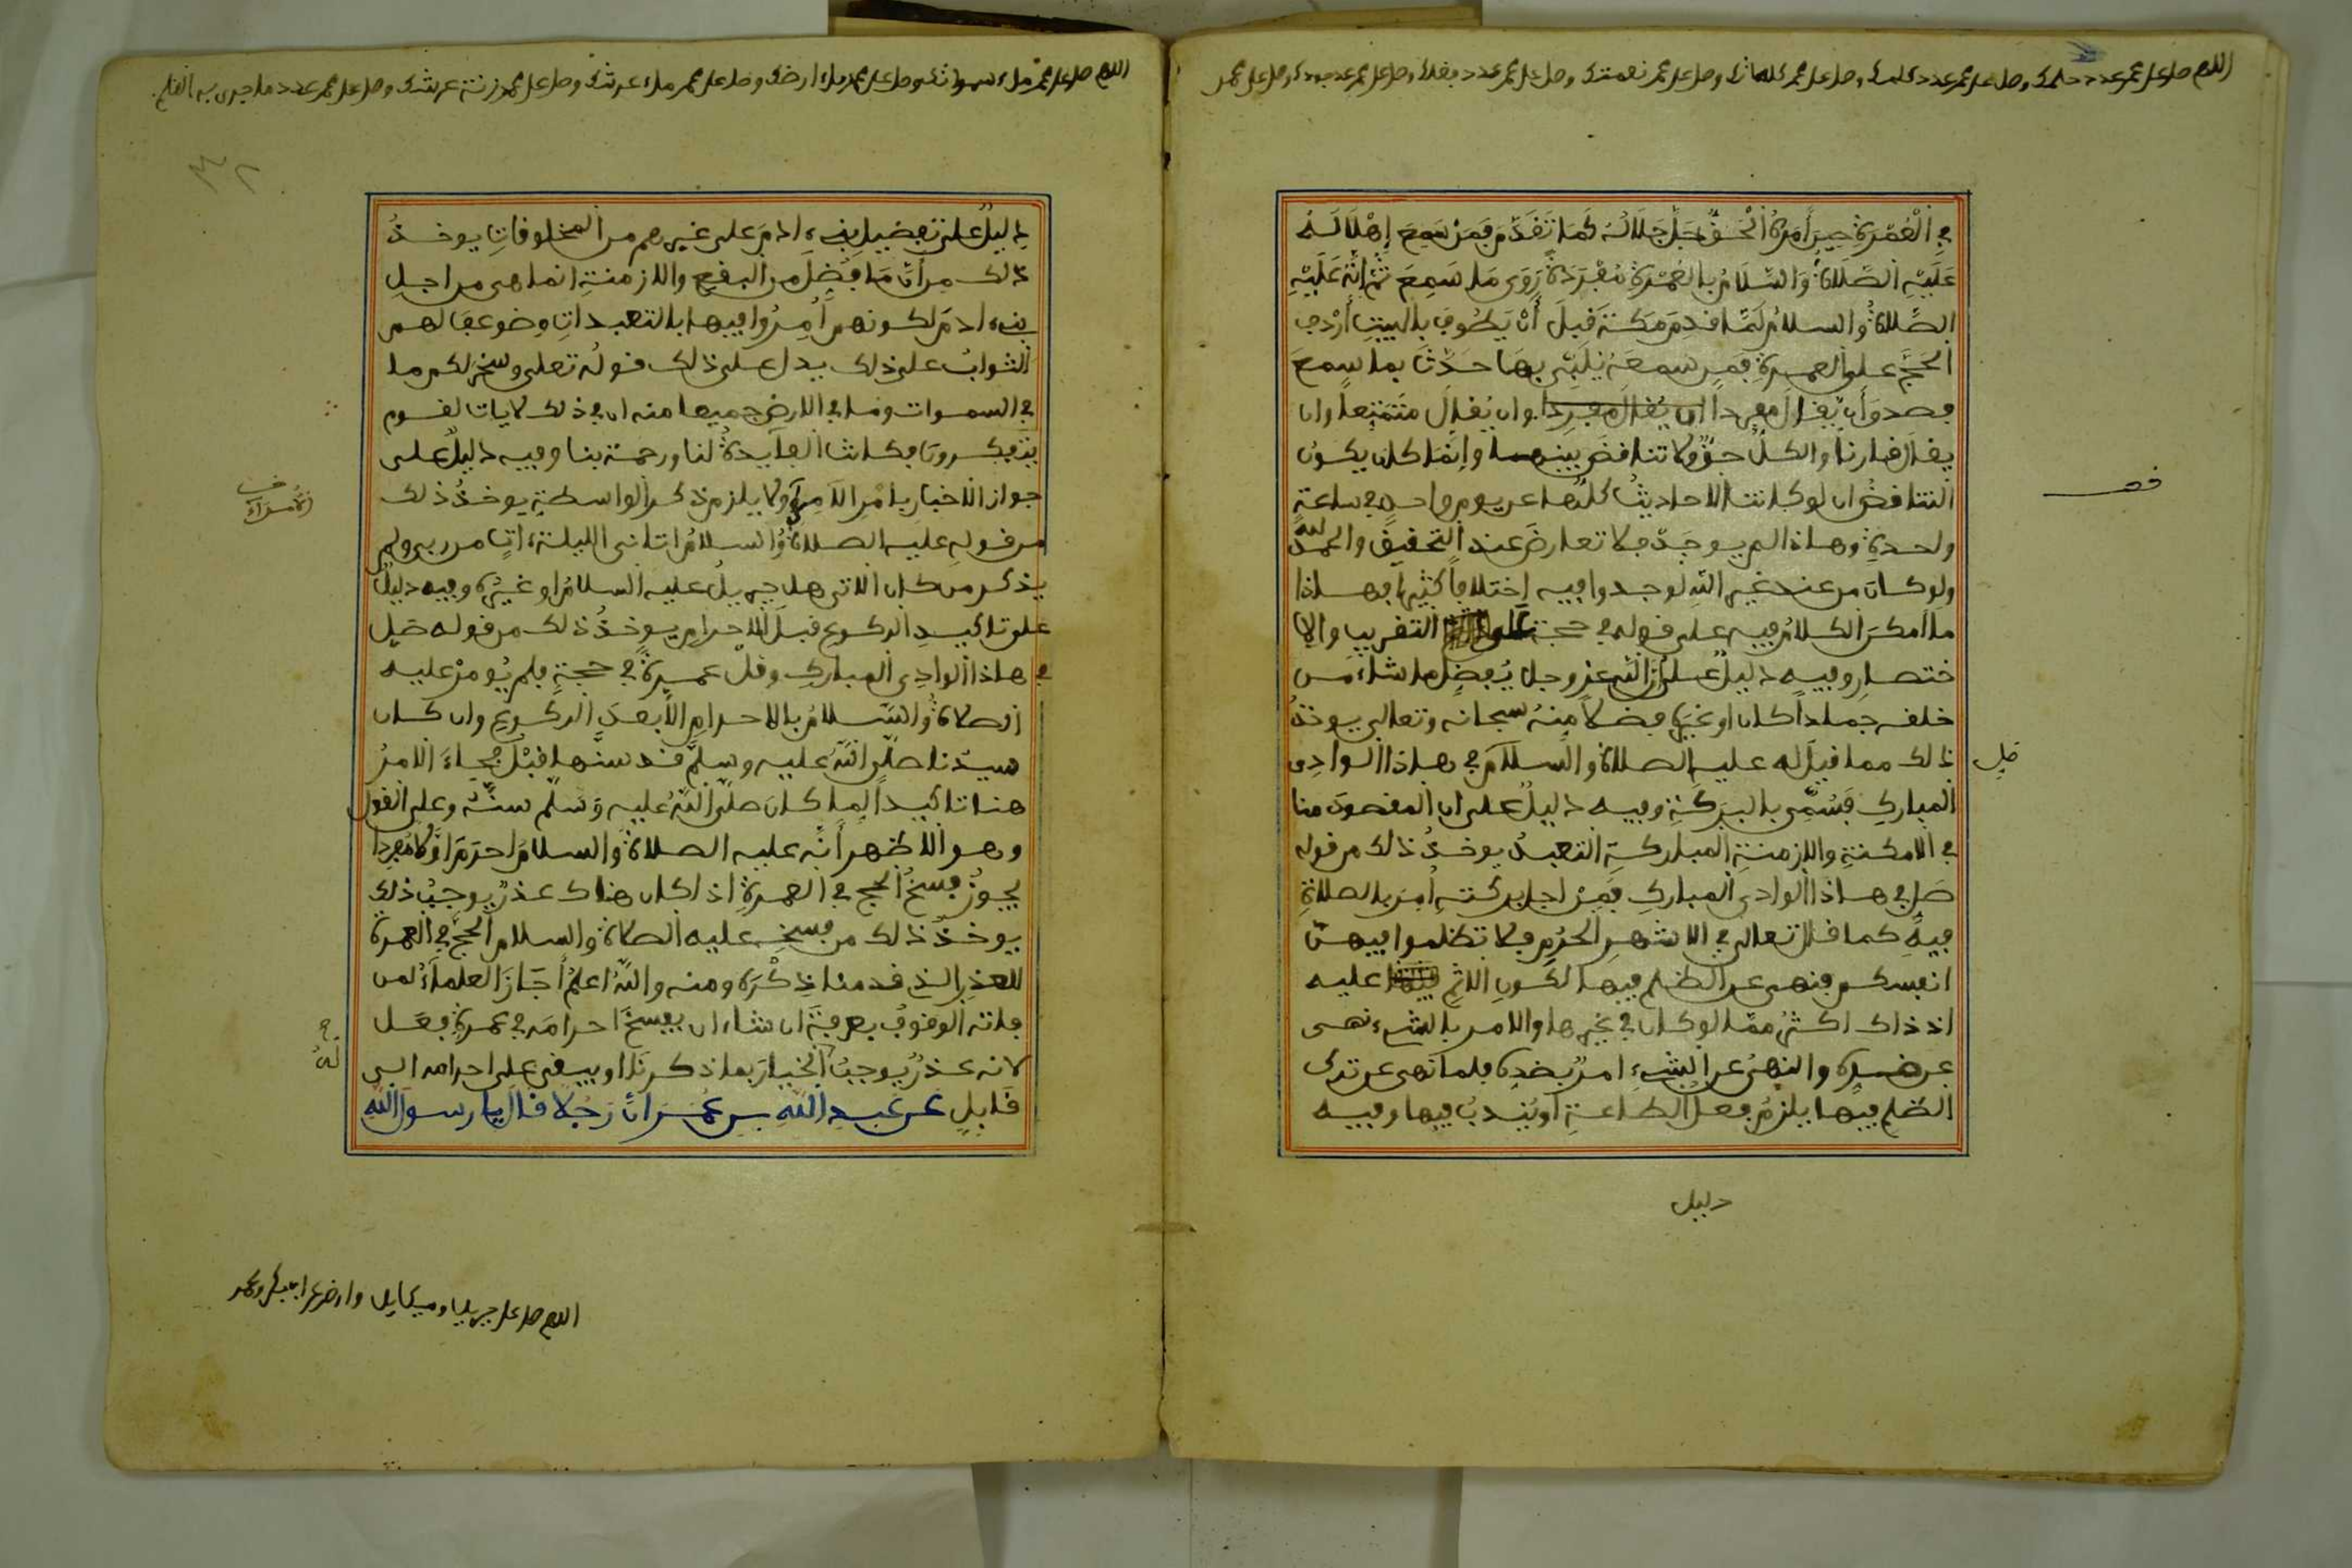 اللهم صل على محمد عدد حلمك وصل على محمد عدد كلماتك وصل على محمد نعمتك وصل على محمد عدد فضلك وصل على محمد عدد جودك وصل على محمد
في العمرة حين أمره الحق جل جلاله كما تقدم فمن سمع إهلاله
عليه الصلاة والسلام بالعمرة مفردة روى ما سمع ثم إنه عليه
الصلاة والسلام لما قدم مكة قبل أن يطوف بالبيت أردف
الحج على العمرة فمن سمعه يلبي بها حدث بما سمع
فصدق أن يقال مفردا وان يقال متمتعا وان
يقال قارنا والكل حق ولا تناقض بينهما وإنما كان يكون
التناقض ان لو كانت الاحاديث كلها عن يوم واحد في ساعة
واحدة وهاذا لم يوجد فلا تعارض عند التحقيق والحمد لله
ولو كان من عند غير الله لوجدوا فيه اختلافا كثيرا فهاذا
ما أمكن الكلام فيه على قوله في حجة على التقريب والا
ختصار وفيه دليل على ان الله عز وجل يفضل ما شاء من
خلقه جمادا كان او غيره فضلا منه سبحانه وتعالى يوخذ
ذلك مما قيل له عليه الصلاة والسلام في هاذا الوادي
المبارك فسمي بالبركة وفيه دليل على ان المقصود منا
في الامكنة والازمنة المباركة التعبد يوخذ ذلك من قوله
صل في هاذا الوادي المبارك فمن اجل بركته أمر بالصلاة
فيه كما قال تعالى في الاشهر الحرم فلا تظلموا فيهن
انفسكم فنهى عن الظلم فيها لكون الاثم عليه
اذ ذاك اكثر مما لو كان في غيرها والامر بالشيء نهى
عن ضده والنهي عن الشيء امر بضده فلما نهى عن ترك
الظلم فيها يلزم فعل الطاعة أو يندب فيها وفيه
قف
صل
دليل
اللهم صل على محمد ملء سمواتك وصل على محمد ملء ارضك وصل على محمد ملء عرشك وصل على محمد زنة عرشك وصل على محمد عدد ما جرى به القلم
٣٢
دليل على تفضيل بني ءادم على غيرهم من المخلوقات يوخذ
ذلك من أن ما فضل من البقع والازمنة انما هي من اجل
بني ءادم لكونهم أمروا فيها بالتعبدات وضوعف لهم
الثواب على ذلك يدل على ذلك قوله تعلى وسخر لكم ما
في السموات وما في الارض جميعا منه ان في ذلك لايات لقوم
يتفكرون فكانت الفايدة لنا ورحمة بنا وفيه دليل على
جواز الاخبار بامر الآمر ولا يلزم ذكر الواسطة يوخذ ذلك
من قوله عليه الصلاة والسلام اتاني الليلة ءات من ربي ولم
يذكر من كان الاتي هل جبريل عليه السلام او غيره وفيه دليل
على تاكيد الركوع قبل الاحرام يوخذ ذلك من قوله صل
في هاذا الوادي المبارك وقل عمرة في حجة فلم يومر عليه
الصلاة والسلام بالاحرام الا بعد الركوع وان كان
سيدنا صلى الله عليه وسلم قد سنها قبل فجاء الامر
هنا تاكيدا لما كان صلى الله عليه وسلم سنه وعلى القول
وهو الاظهر أنه عليه الصلاة والسلام احرم اولا مفردا
يجوز فسخ الحج في العمرة اذا كان هناك عذر يوجب ذلك
يوخذ ذلك من فسخه عليه الصلاة والسلام الحج في العمرة
للعذر الذي قدمنا ذكره ومنه والله اعلم أجاز العلماء لمن
فاته الوقوف بعرفة ان شاء ان يفسخ احرامه في عمرة فعل
لانه عذر يوجب الخيار بما ذكرنا او يبقى على احرامه الى
قابل عن عبد الله بن عمر ان رجلا قال يا رسول الله
اللهم صل على جبريل وميكايل وارض عن ابي بكر وعمر